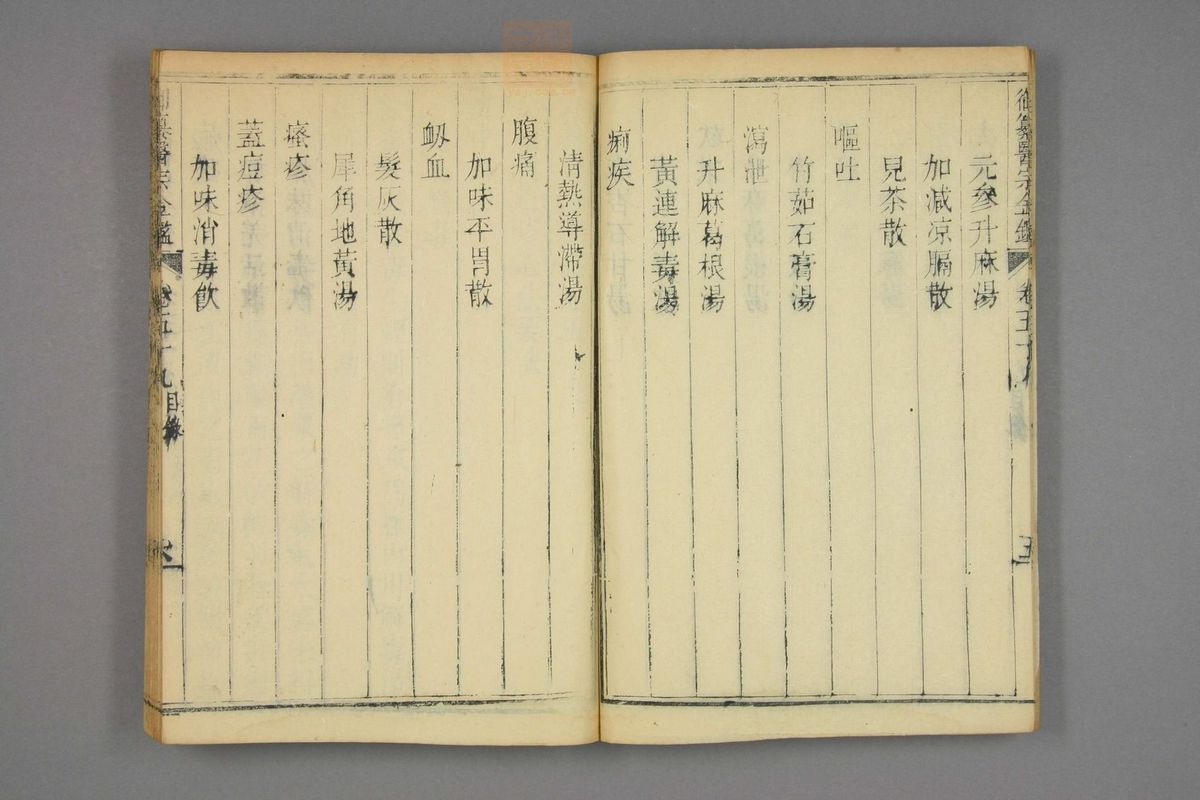 御纂醫宗金鑑 卷五十九 目錄 五
元參升麻湯
加減凉膈散
見茶散
嘔吐
竹茹石膏湯
瀉泄
升麻葛根湯
黃連解毒湯
痢疾
清熱導滯湯
腹痛
加味平胃散
衂血
髮灰散
犀角地黃湯
瘙疹
蓋痘疹
加味消毒飲
御纂醫宗金鑑 卷五十九 目錄 六